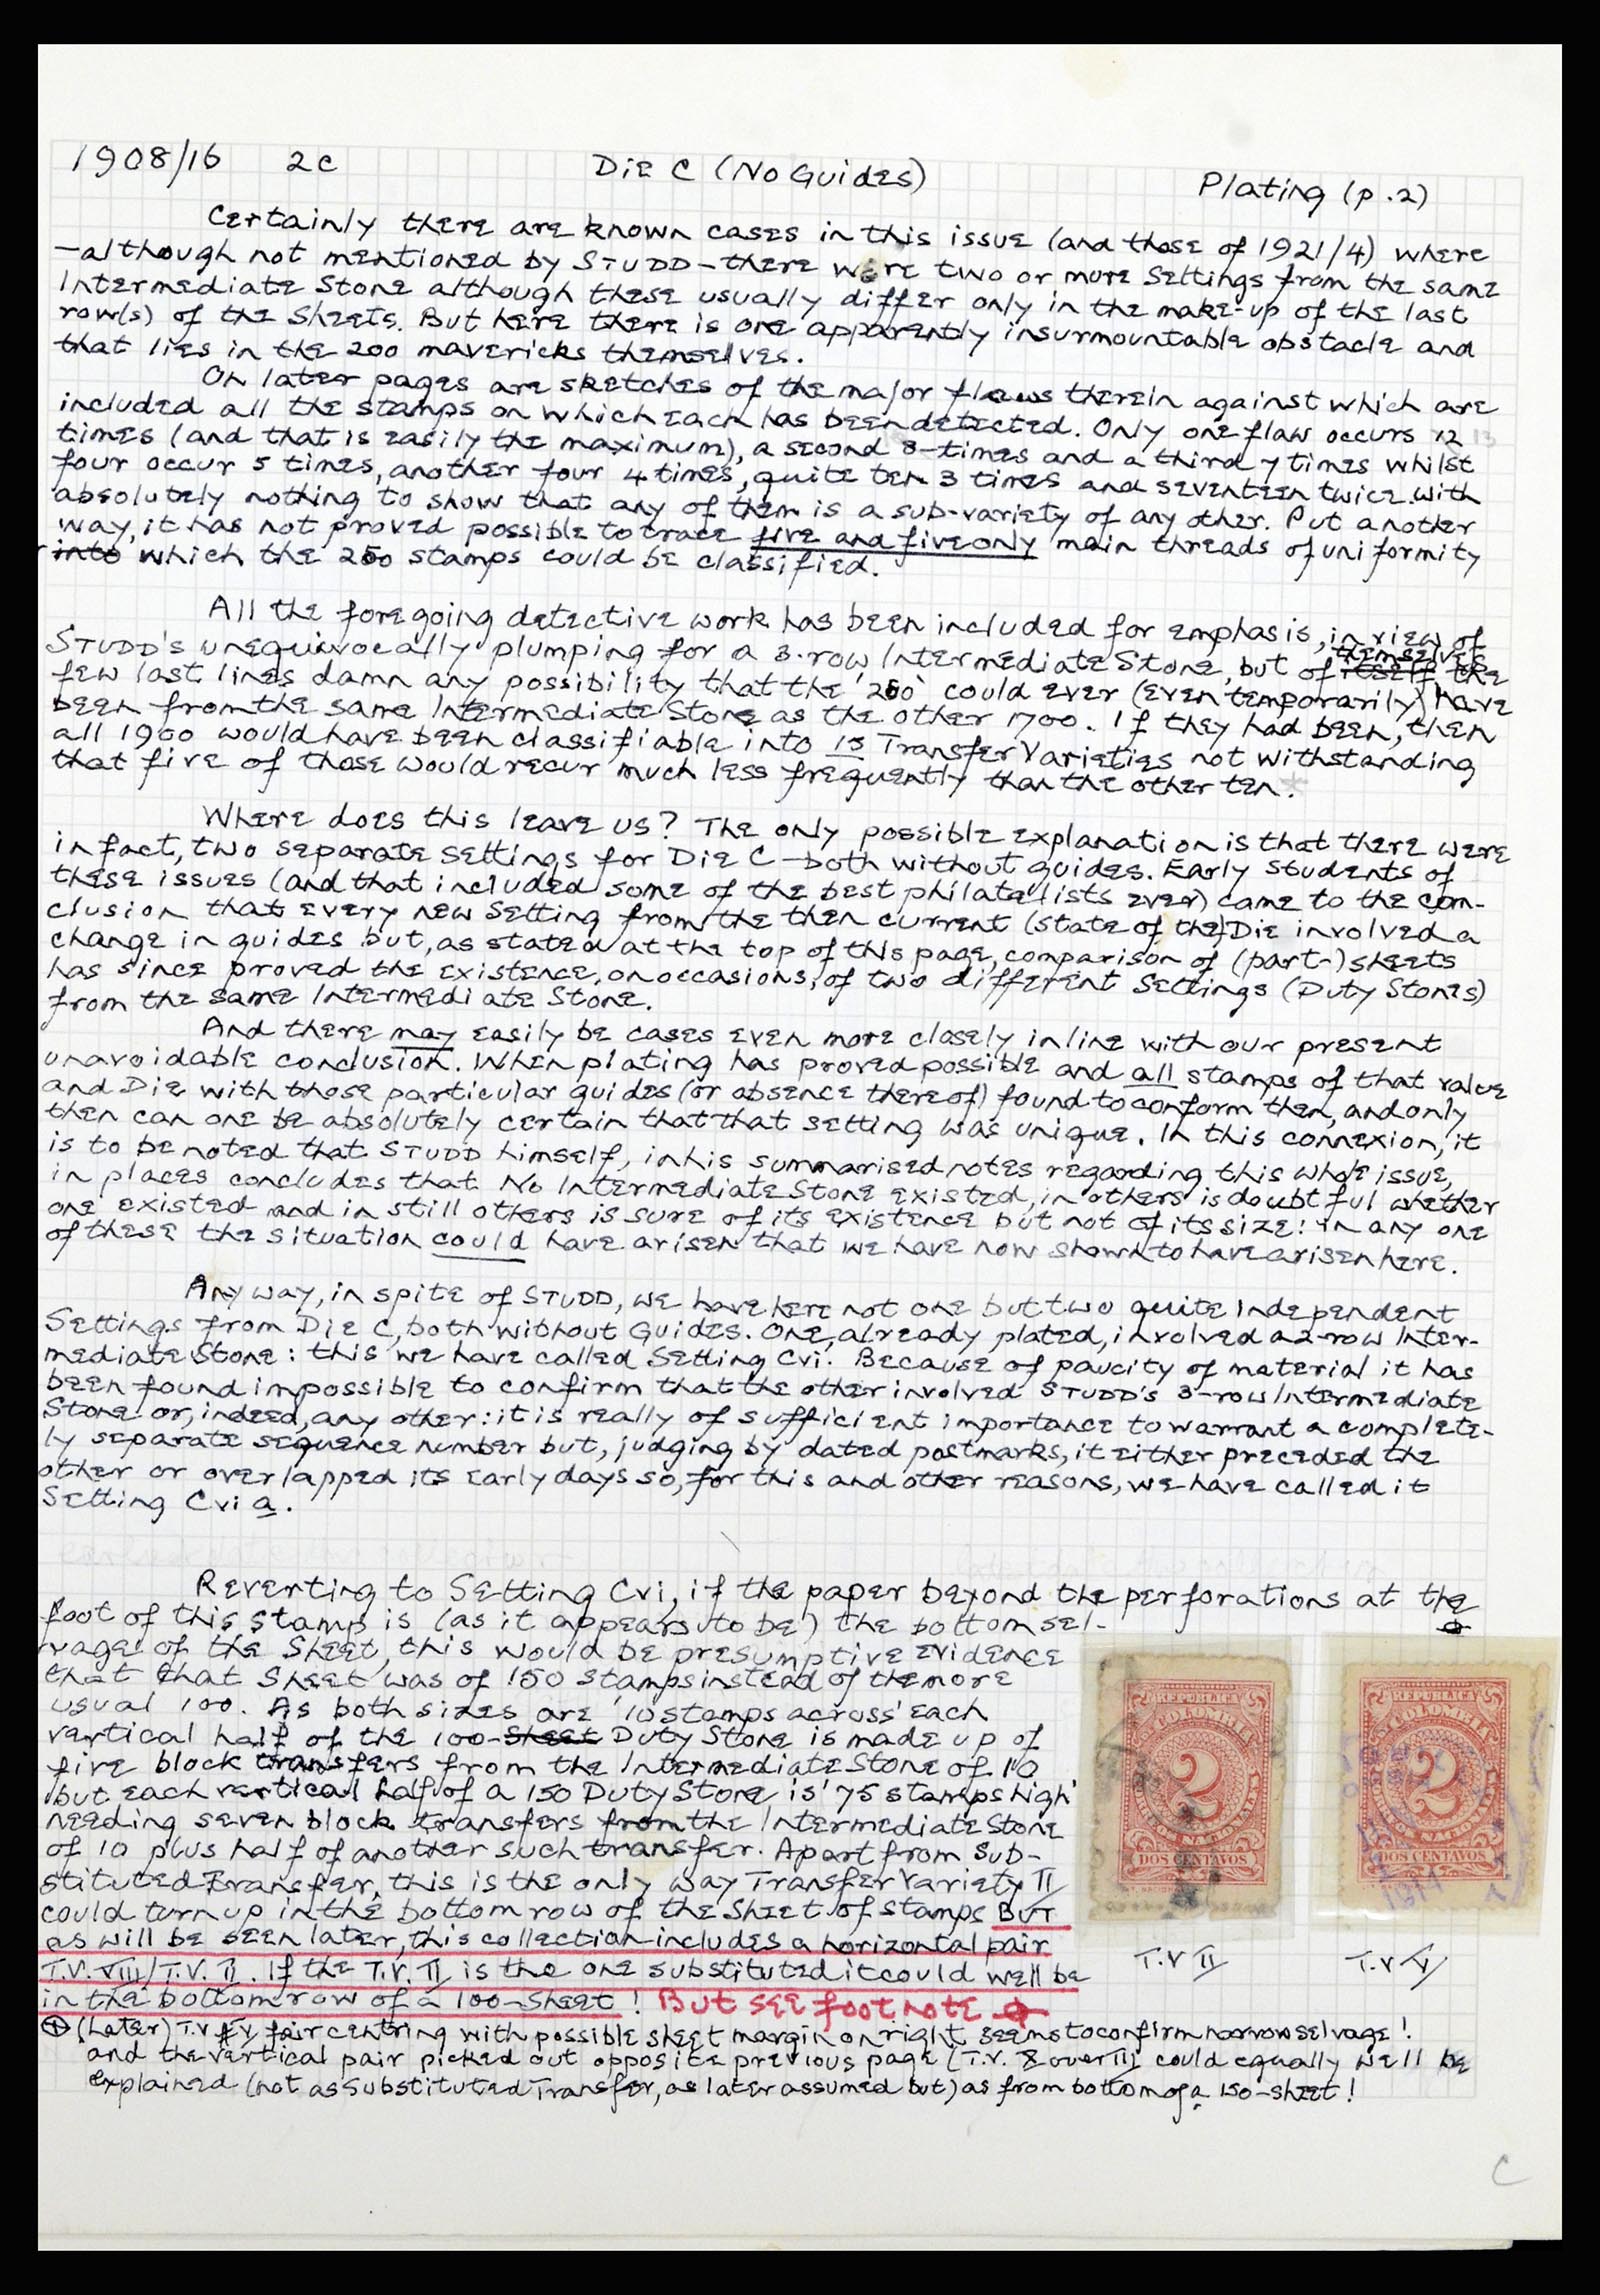 1908/16 2c Die C (No Guides) Plating (p.2)
Certainly there are known cases in this issue (and those of 1921/4) where
—although not mentioned by STUDD—there were two or more Settings from the same
Intermediate Stone although these usually differ only in the make-up of the last
row(s) of the Sheets. But here there is one apparently insurmountable obstacle and
that lies in the 200 mavericks themselves.
On later pages are sketches of the major flaws therein against which are
included all the stamps on which each has been detected. Only one flaw occurs 12 13
times (and that is easily the maximum), a second 8-times and a third 7 times whilst
four occur 5 times, another four 4 times, quite ten 3 times and seventeen twice with
absolutely nothing to show that any of them is a sub-variety of any other. Put another
way, it has not proved possible to trace five and five only main threads of uniformity
into which the 250 stamps could be classified.
All the foregoing detective work has been included for emphasis, in view of
STUDD's unequivocally plumping for a 3-row Intermediate Stone, but of themselves itself the
few last lines damn any possibility that the '250' could ever (even temporarily) have
been from the same Intermediate Stone as the other 1700. If they had been, then
all 1900 would have been classifiable into 15 Transfer Varieties not withstanding
that five of those would recur much less frequently than the other ten.*
Where does this leave us? The only possible explanation is that there were
in fact, two separate settings for Die C—both without guides. Early students of
these issues (and that included some of the best philatelists ever) came to the con-
clusion that every new Setting from the then current (state of the) Die involved a
change in guides but, as stated at the top of this page, comparison of (part-)sheets
has since proved the existence, on occasions, of two different Settings (Duty Stones)
from the same Intermediate Stone.
And there may easily be cases even more closely in line with our present
unavoidable conclusion. When plating has proved possible and all stamps of that value
and Die with those particular guides (or absence thereof) found to conform then, and only
then can one be absolutely certain that that setting was unique. In this connexion, it
is to be noted that STUDD himself, in his summarised notes regarding this whole issue,
in places concludes that No Intermediate Stone existed, in others is doubtful whether
one existed and in still others is sure of its existence but not of its size! In any one
of these the situation could have arisen that we have now shown to have arisen here.
Anyway, in spite of STUDD, we have here not one but two quite independent
Settings from Die C, both without Guides. One, already plated, involved a 2-row Inter-
mediate Stone: this we have called Setting Cvi. Because of paucity of material it has
been found impossible to confirm that the other involved STUDD's 3-row Intermediate
Stone or, indeed, any other: it is really of sufficient importance to warrant a complete-
ly separate sequence number but, judging by dated postmarks, it either preceded the
other or overlapped its early days so, for this and other reasons, we have called it
Setting Cvi a.
Reverting to Setting Cvi, if the paper beyond the perforations at the
foot of this stamp is (as it appears to be) the bottom sel-
vage of the Sheet, this would be presumptive evidence
that that Sheet was of 150 stamps instead of the more
usual 100. As both sizes are '10 stamps across' each
vertical half of the 100-Sheet Duty Stone is made up of
five block transfers from the Intermediate Stone of 10
but each vertical half of a 150 Duty Stone is '75 stamps high'
needing seven block transfers from the Intermediate Stone
of 10 plus half of another such transfer. Apart from Sub-
stituted Transfer, this is the only way Transfer Variety II
could turn up in the bottom row of the Sheet of stamps BUT
as will be seen later, this collection includes a horizontal pair
T.V. VIII/T.V. II. If the T.V. II is the one substituted it could well be
in the bottom row of a 100-Sheet! But see footnote
REPUBLICA
DE COLOMBIA
2
CORREOS NACIONALES
DOS CENTAVOS
T.V II
REPUBLICA
DE COLOMBIA
2
CORREOS NACIONALES
DOS CENTAVOS
1914
T.V IV
(Later) T.V IV fair centring with possible sheet margin on right seems to confirm narrow selvage!
and the vertical pair picked out opposite previous page (T.V. X over III) could equally well be
explained (not as Substituted Transfer, as later assumed but) as from bottom of a 150-sheet!
C